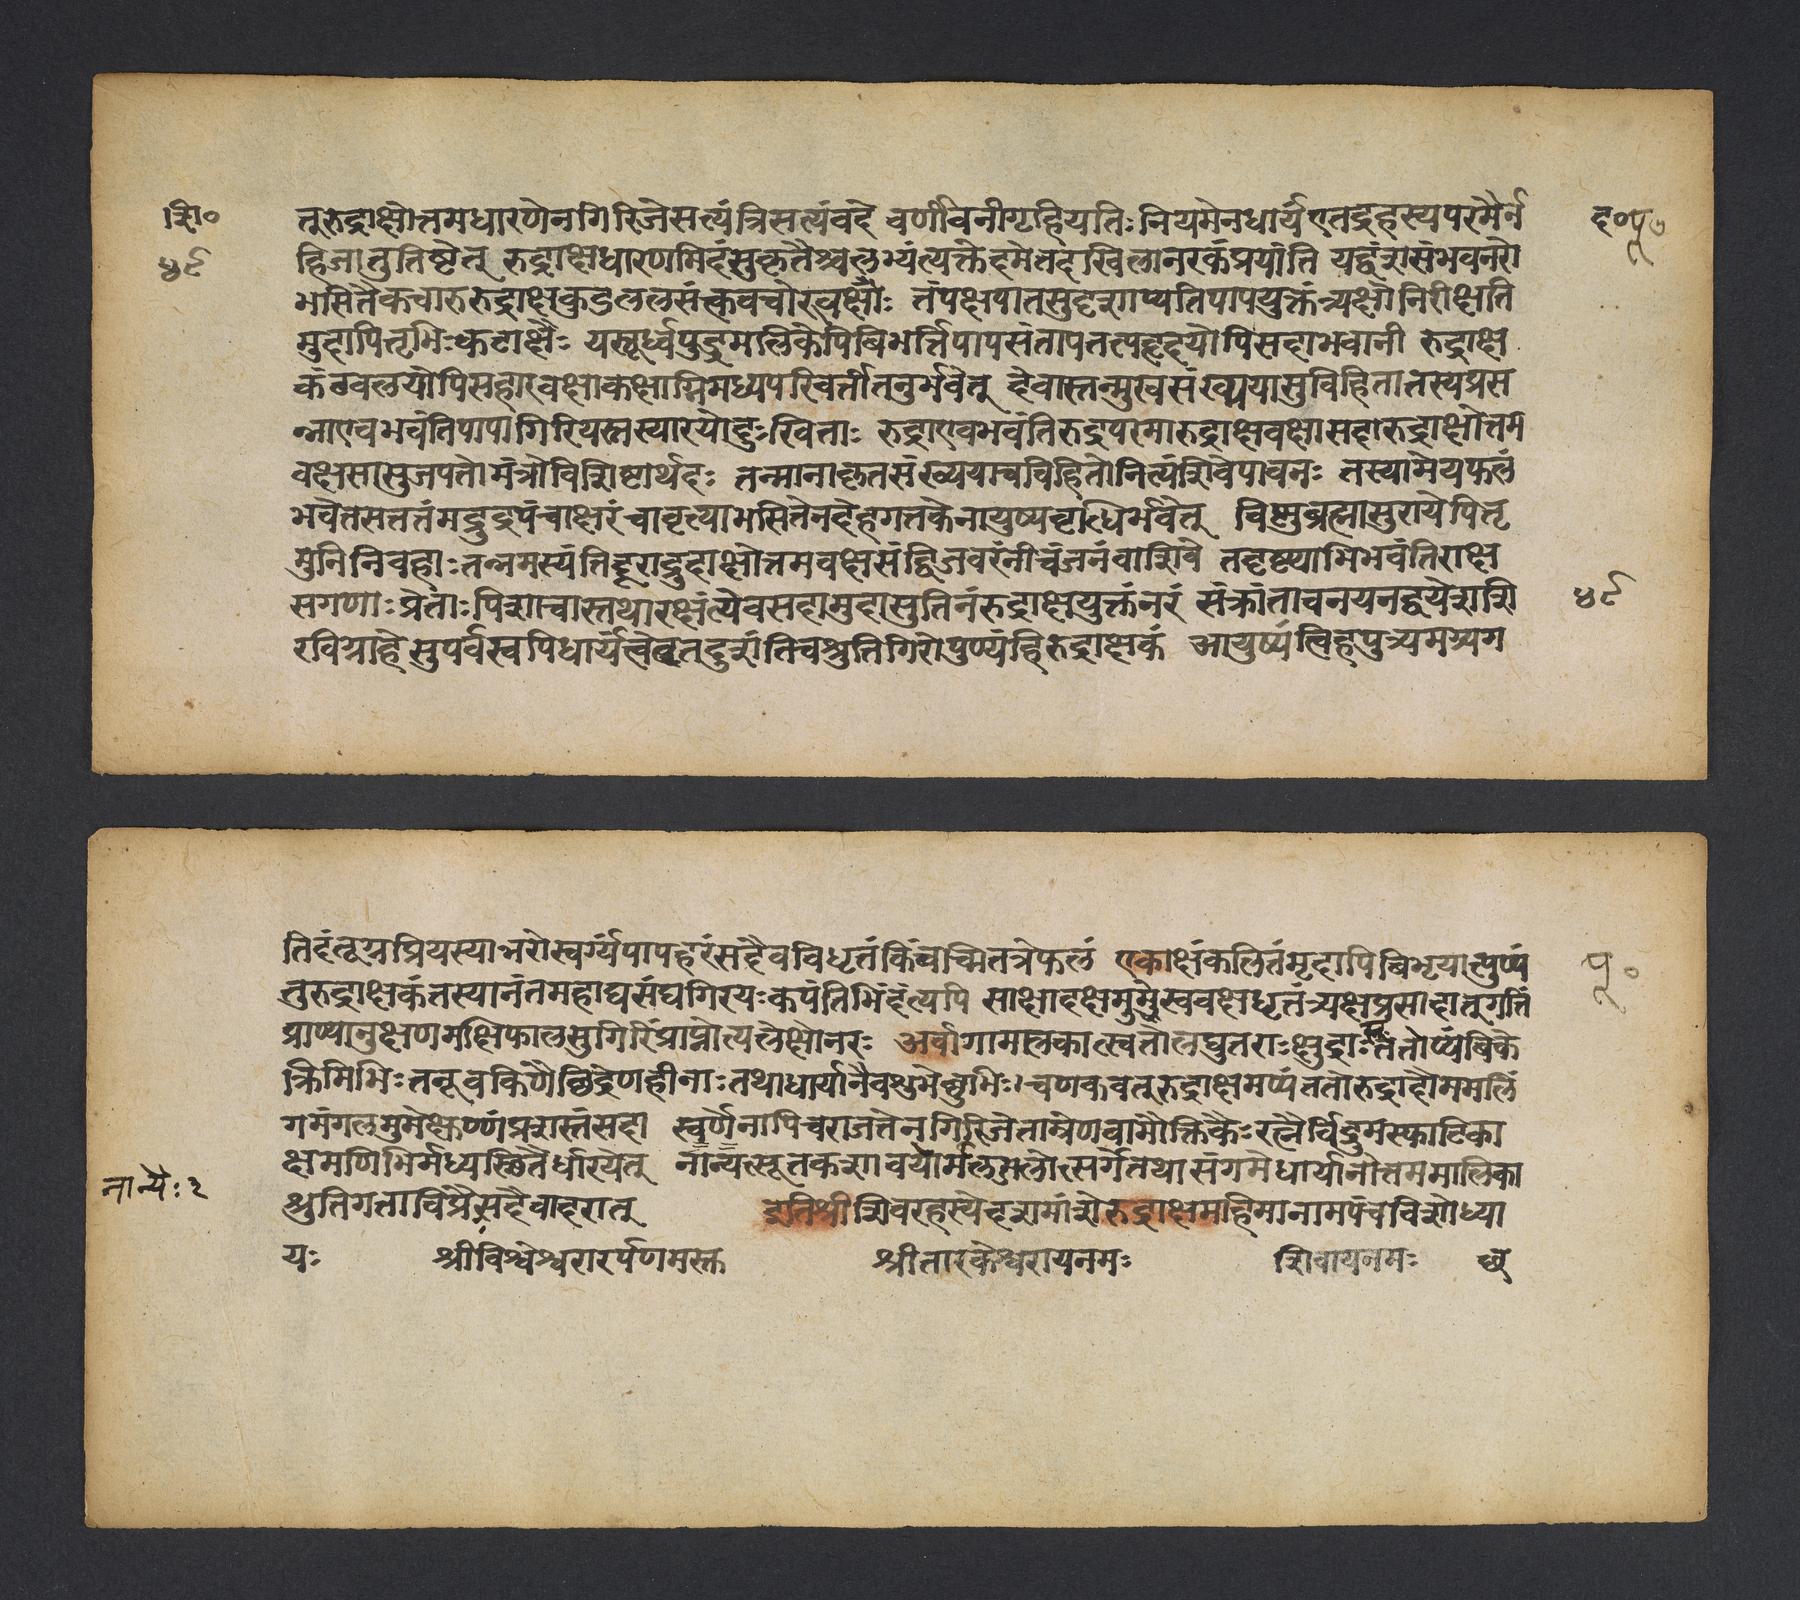 शि॰
४९
द॰पू॰
तुरुद्राक्षोत्तमधारणेनगिरिजेसत्यंत्रिसत्यंवदे वर्णीवनीगृहियतिः नियमेनधार्यएतद्रहस्यपरमैर्न
हिजातुतिष्टेत् रुद्राक्षधारणमिदंसुकृतैश्चलभ्यंत्यक्तेदमेतदखिलानरकंप्रयांति यद्वंशसंभवनरो
भसितैकचारुरुद्राक्षकुडललसंत्कवचोरुवक्षाः तंपक्षपातसुदृशाप्यतिपापयुक्तंत्र्यक्षोनिरीक्षति
मुदापितृभिःकटाक्षैः यस्तूर्ध्वपुंड्रमलिकेपिबिभर्त्तिपापसंतापतत्पहृदयोपिसदाभवानी रुद्राक्ष
कंठवलयोपिसदारुवक्षाकक्षाग्निमध्यपरिवर्त्तीतनुर्भवेत् देवास्तन्मुखसंख्ययासुविहितातस्यप्रस
न्नाएवभवंतिपापागिरियस्तस्यारयोदुःखिताः रुद्राएवभवंतिरुद्रपरमारुद्राक्षवक्षासदारुद्राक्षोत्तम
वक्षसासुजपतोमंत्रोविशिष्टार्थदः तन्मानाकृतसंख्ययाचविहितोनित्यंशिवेपावनः तस्यामेयफलं
भवेत्तसततंमद्रुद्रपंचाक्षरंचावृत्याभसितेनदेहगतकेनायुष्यवृध्धिर्भवेत् विष्णुब्रह्मासुरायेपितृ
मुनिनिवहाःतन्नमस्यंतिदूराद्रुद्राक्षोत्तमवक्षसंद्विजवरंनीचंजनंवाशिवे तद्दृष्ट्याभिभवंतिराक्ष
सगणाःप्रेताःपिशाचास्तथारक्षंत्येवसदामुदासुतिनंरुद्राक्षयुक्तंनरं संक्रांतावनयनद्वयेशशि
४९
रविग्राहेसुपर्वस्वपिधार्यत्वेतद्दुशंतिचश्रुतिगिरोपुण्यंहिरुद्राक्षकं आयुष्यंत्विहपुत्र्यमग्र्यग
५॰
तिदंतूग्रप्रियस्यान्नरोस्वर्ग्यंपापहरंसदैवविधृतंकिंवच्मितत्रेफलं एकाक्षंकलितंमृदापिबिभृयात्पुण्यं
तुरुद्राक्षकंतस्यानंतमहाघसंघगिरयःकपंतिभिंदंत्यपि साक्षादक्षमुमुखववक्षधृतंत्र्यक्षप्रसादात्गतिं
प्राप्यानुक्षणमक्षिफालसुगिरिंप्राप्नोत्यलेक्षोनरः अर्वागामालकात्स्वतोलघुतराःक्षुद्राःततोप्यंबिके
क्रिमिभिःतनूवकिणैछिद्रेणहीनाःतथाधार्यानैवशुभेच्छुभिः।चणकवत्रुद्राक्षमप्यंततोरुद्राहोममलिं
गमंगलमुमेक्षुण्णंप्रशस्तंसदा स्वर्णेनापिचराजतेनगिरिजेताम्रेणवामौक्तिकैःरत्नैर्विद्रुमस्फाटिका
क्षमणिभिर्मध्यस्छितैर्धारयेत् नान्यत्सूतकशावयोर्मलमलोत्सर्गेतथासंगमेधार्यानोत्तममालिका
नान्यैः२
श्रुतिगताविप्रैःसदैवादरात् इतिश्रीशिवरहस्येदशमांशेरुद्राक्षमहिमानामपंचविंशोध्या
यः श्रीविश्वेश्वरारर्पणमस्त श्रीतारकेश्वरायनमः शिवायनमः छ